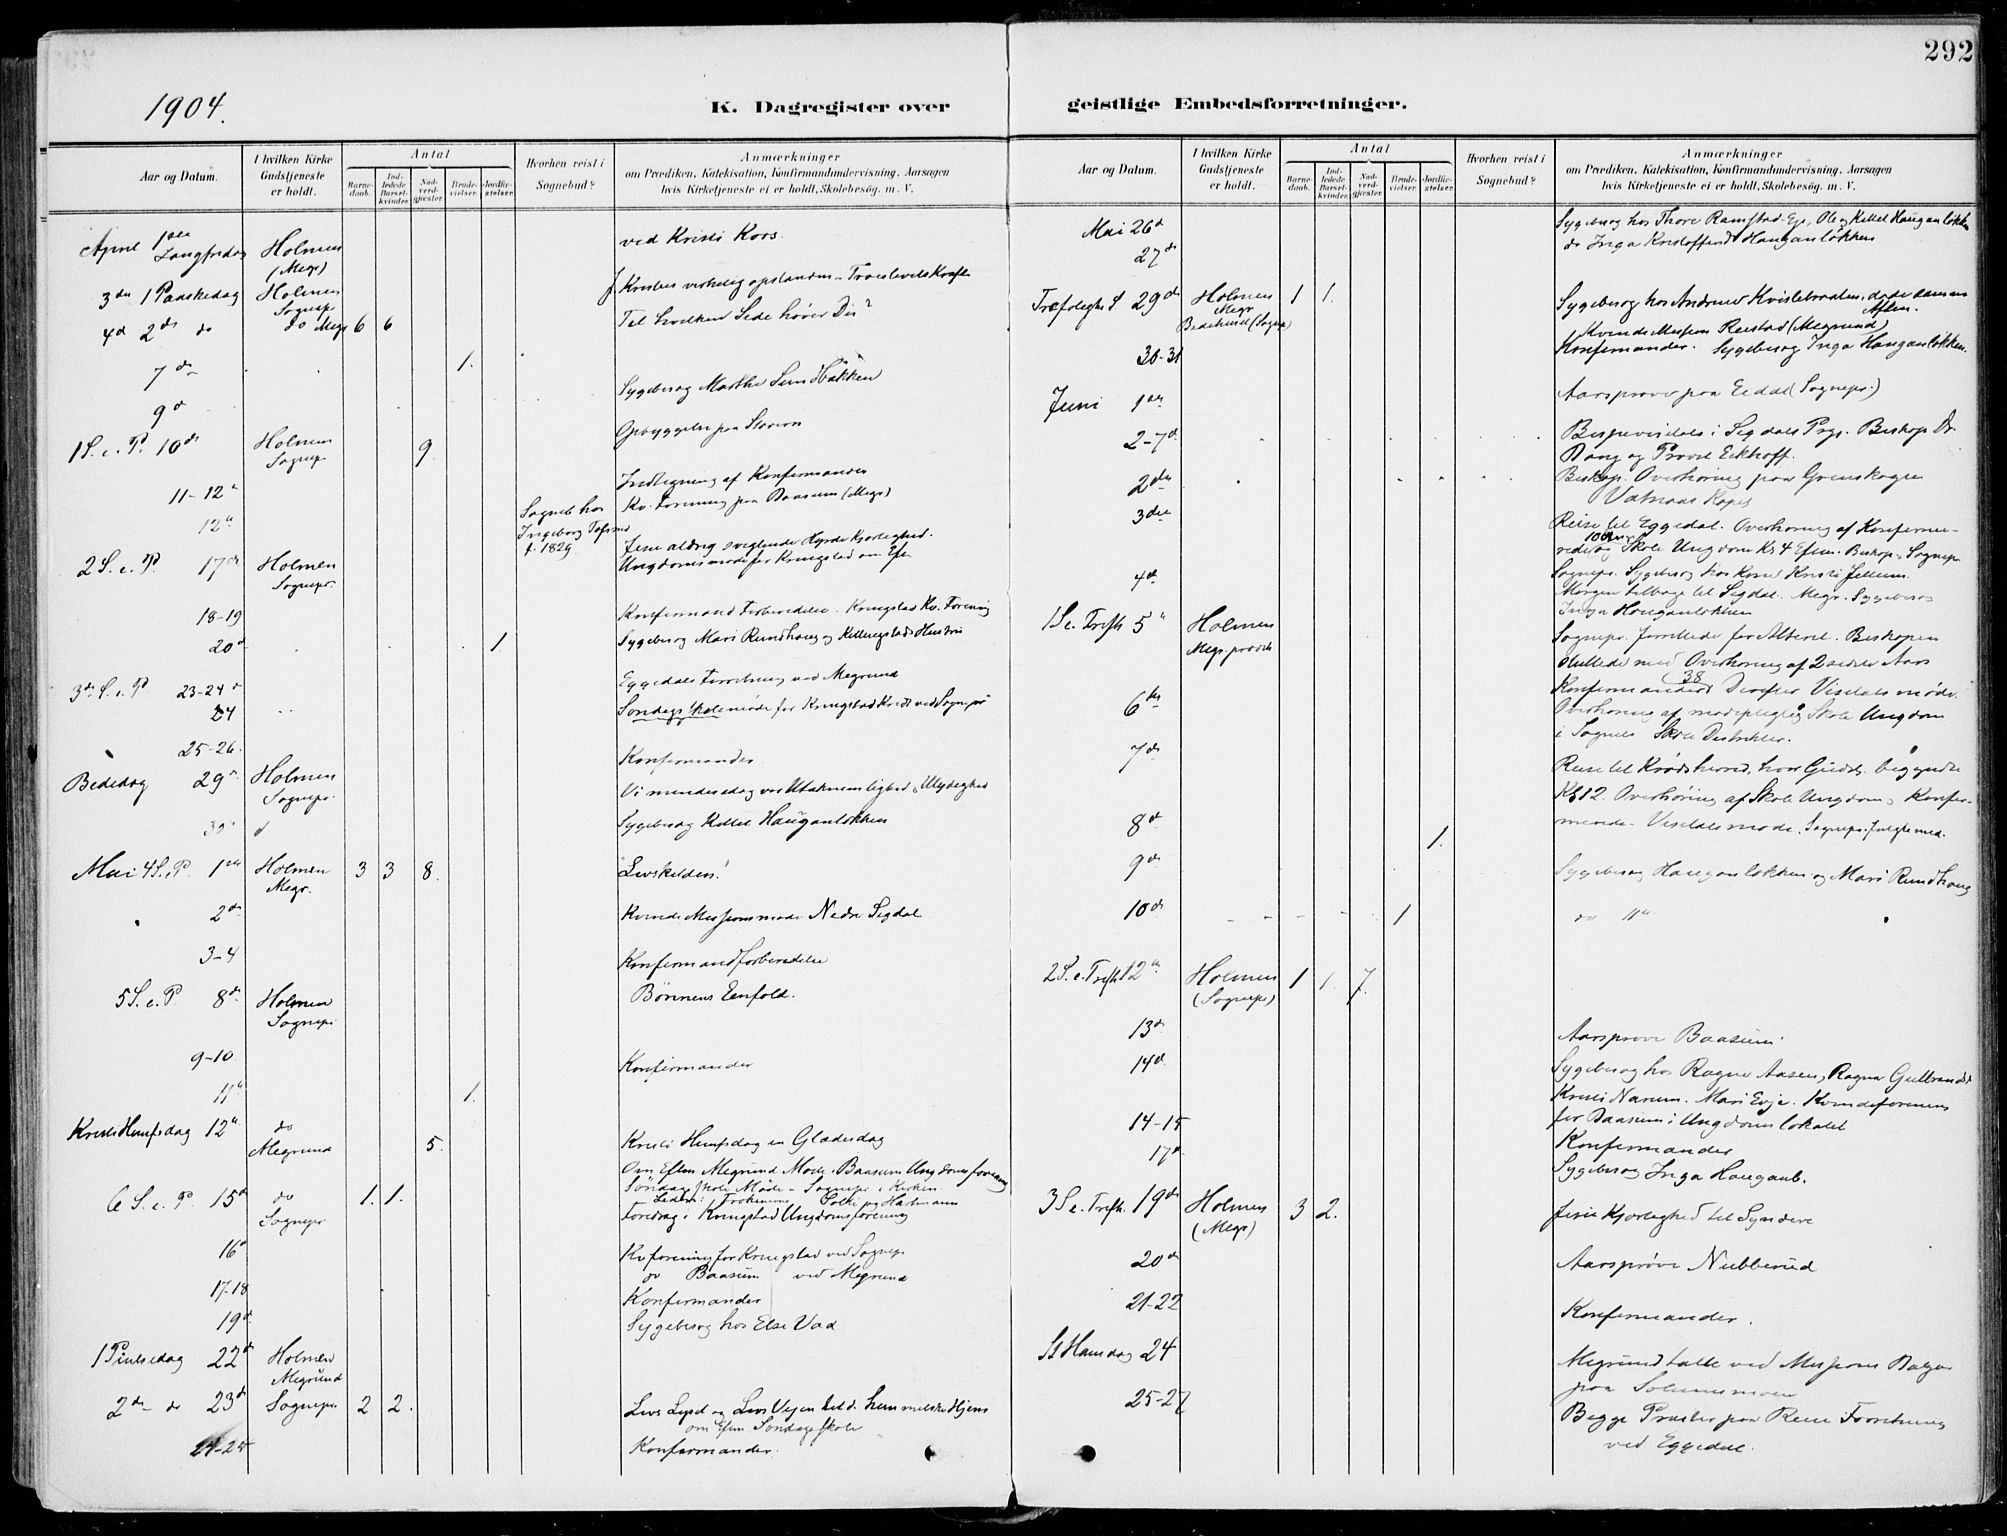 292
1904.
K. Dagregister over geistlige Embedsforretninger.
Aar og Datum.
I hvilken Kirke Gudstjeneste er holdt.
Antal
Barnedaab.
Indledede Barselkvinder.
Nadverdgjæster.
Brudevielser.
Jordfæstelser.
Hvorhen reist i Sognebud?
Anmærkninger
om Prædiken, Katekisation, Konfirmandundervisning, Aarsagen
hvis Kirketjeneste ei er holdt, Skolebesøg. m. V.
April 1ste Langfredag Holmen (Megr) ved Kristi Kors
3die 1 Paaskedag Holmen Sognepr Kristus virkelig opstanden
4d 2den do do Megr 6 6 Til hvilken Side hører Du?
7de 1.
9d Sygebesøg Marthe Sundbakken
1 S. e. P. 10de Holmen Sognepr 9 Opbyggelse paa
11-12te Indtegning af Konfirmander
12te Sogneb hos Ingeborg f. 1829 Kv. Forening paa Baasum (Megr)
2 S. e. P. 17de Holmen Sognepr. Jesu aldrig svigtende Hyrde Kjærlighed.
Ungdomsmøde for Kringstad om Eft
18-19 Konfirmand Forberedelse. Kringstad Kv. Forening
20d 1 Sygebesøg Mari Rundhaug og
3die S. e. P 23-24d Eggedals Forretning ved Megrund
24 Søndagsskolemøde for Kringstad Kreds ved Sognepr
25-26. Konfirmander
Bededag 29de Holmen Sognepr. Vi mindes idag vor Utaknemlighed, Ulydighed
30te Sygebesøg Kittel Hauganløkken
Mai 4 S. e. P. 1ste Holmen Megr. 3 3 8. "Livskilden"
2den Kvinde Missionsmøde Nedre Sigdal
3-4 Konfirmandforberedelse
5 S. e. P. 8de Holmen Sognepr Bønnens Eenfold.
9-10 Konfirmander
11te 1.
Kristi Himlfsdag 12te do Megrund 5. Kristi Himfsdag en Glædesdag
Om Eften Megrund Møde. Baasum Ungdomsforening
6 S. e. P. 15d do Sognepr 1. 1. Søndagsskole Møde - Sognepr i Kirken
Foredrag i Kringstad Ungdomsforening
16d Kvforening for Kringstad ved Sognepr
do Baasum ved Megrund
17-18 Konfirmander
19d Sygebesøg hos Else Vad
1 Pintsedag 22d Holmen Megrund
2den do 23d Sognepr. 2 2. Livs Lyset og Livs Veien til d. himmelske Hjem
om Eften Søndagsskole
24-25 Konfirmander.
Aar og Datum.
I hvilken Kirke Gudstjeneste er holdt.
Antal
Barnedaab.
Indledede Barselkvinder.
Nadverdgjæster.
Brudevielser.
Jordfæstelser.
Hvorhen reist i Sognebud?
Anmærkninger
om Prædiken, Katekisation, Konfirmandundervisning, Aarsagen
hvis Kirketjeneste ei er holdt, Skolebesøg. m. V.
Mai 26d Sygebesøg hos Thore Ramstad Eje, Ole og Kittel Hauganløkken
27de do Inga Kristoffersd Hauganløkken
29de Holmen Megr Bedehuset (Sognepr) 1 1. Sygebesøg hos Andreas Kvislebraaten, døde samme Aften.
Kvinde Mission Reistad (Megrund)
30-31 Konfirmander. Sygebesøg Inga Hauganløkken.
Juni 1ste Aarsprøve paa Eedal (Sognepr.)
2-7d. Bispevisitats i Sigdals Prgj. Biskop Dr.
Bang og Provst Eckhoff.
2den Biskop. Overhøring paa Grenskogen
Vatnaas Kapel
3die Reise til Eggedal. Overhøring af Konfirmerede
og Skole Ungdom Kl 4 Eftm. Biskop, Sognepr
4de Sognepr. Sygebesøg hos Kone Kristi Jellum
Morgen tilbage til Sigdal. Megr. Sygebesøg
Inga Hauganløkken
1 S e. Trefh 5te Holmen Megr. præd. Sognepr. forrettede for Alteret. Biskopen
sluttede med Overhøring af 2 sidste Aars
Konfirmander 38 Derefter Visitats møde.
6te Overhøring af mødepligtig Skole Ungdom
i Sognets Skole Distrikter.
7de Reise til Krødsherred, hvor Gudst. begyndte
Kl 12. Overhøring af Skole Ungdom, Konfirmerede
- Visitatsmøde. Sognepr. fulgte med.
8de 1.
9de Sygebesøg Hauganløkken og Mari Rundhaug
10de 1 do 11te
2 S. e. Trefh 12te Holmen (Sognepr) 1 1. 7.
13de Aarsprøve Baasum.
14d. Sygebesøg hos Ragne Aasen, Ragna Gulbrandsd
Kristi Narum. Mari Evje. Kvindeforening
for Baasum i Ungdomslokalet
14-15 Konfirmander
17d. Sygebesøg Inga Hauganl.
3 S e. Trefh. 19de Holmen (Megr) 3 2. Jesu Kjærlighed til Syndere
20de Aarsprøve Nubberud
21-22 Konfirmander.
St Hansdag 24 Megrund talte ved Missions Bazar
paa Solumsmoen
25-27 Begge Præster paa Reise Forretning
ved Eggedal.